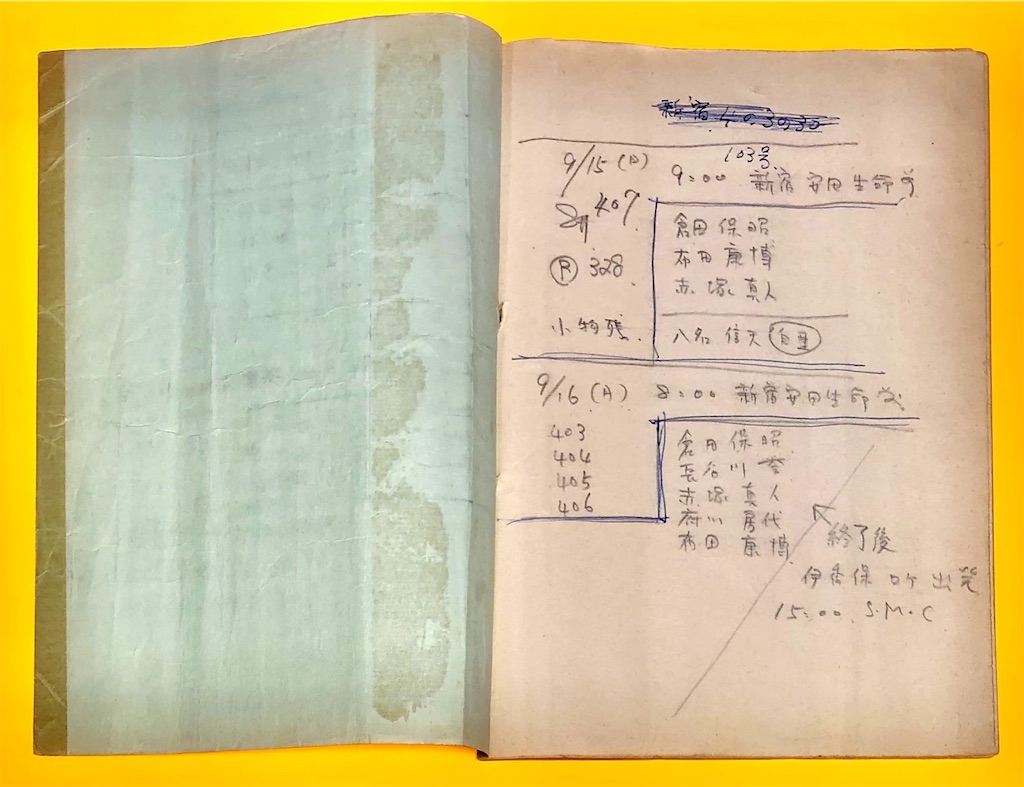 新宿 40.3030
9/15 (日) 9:00 新宿安田生命
103号
407
Ⓡ 328
小物残
倉田保昭
布田康博
赤塚真人
八名信夫
9/16 (月) 8:00 新宿安田生命
403
404
405
406
倉田保昭
長谷川
赤塚真人
府川房代
布田康博
終了後
伊香保ロケ出発
15:00 S.M.C